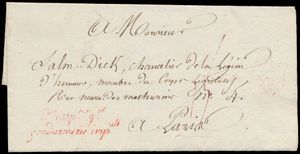 A Monsieur
Salm-Dick, chancelier de la Légion
d'honneur, membre du Corps Législatif
Rue neuve des mathurins N° 4.
A Paris
gendarmerie imp ale